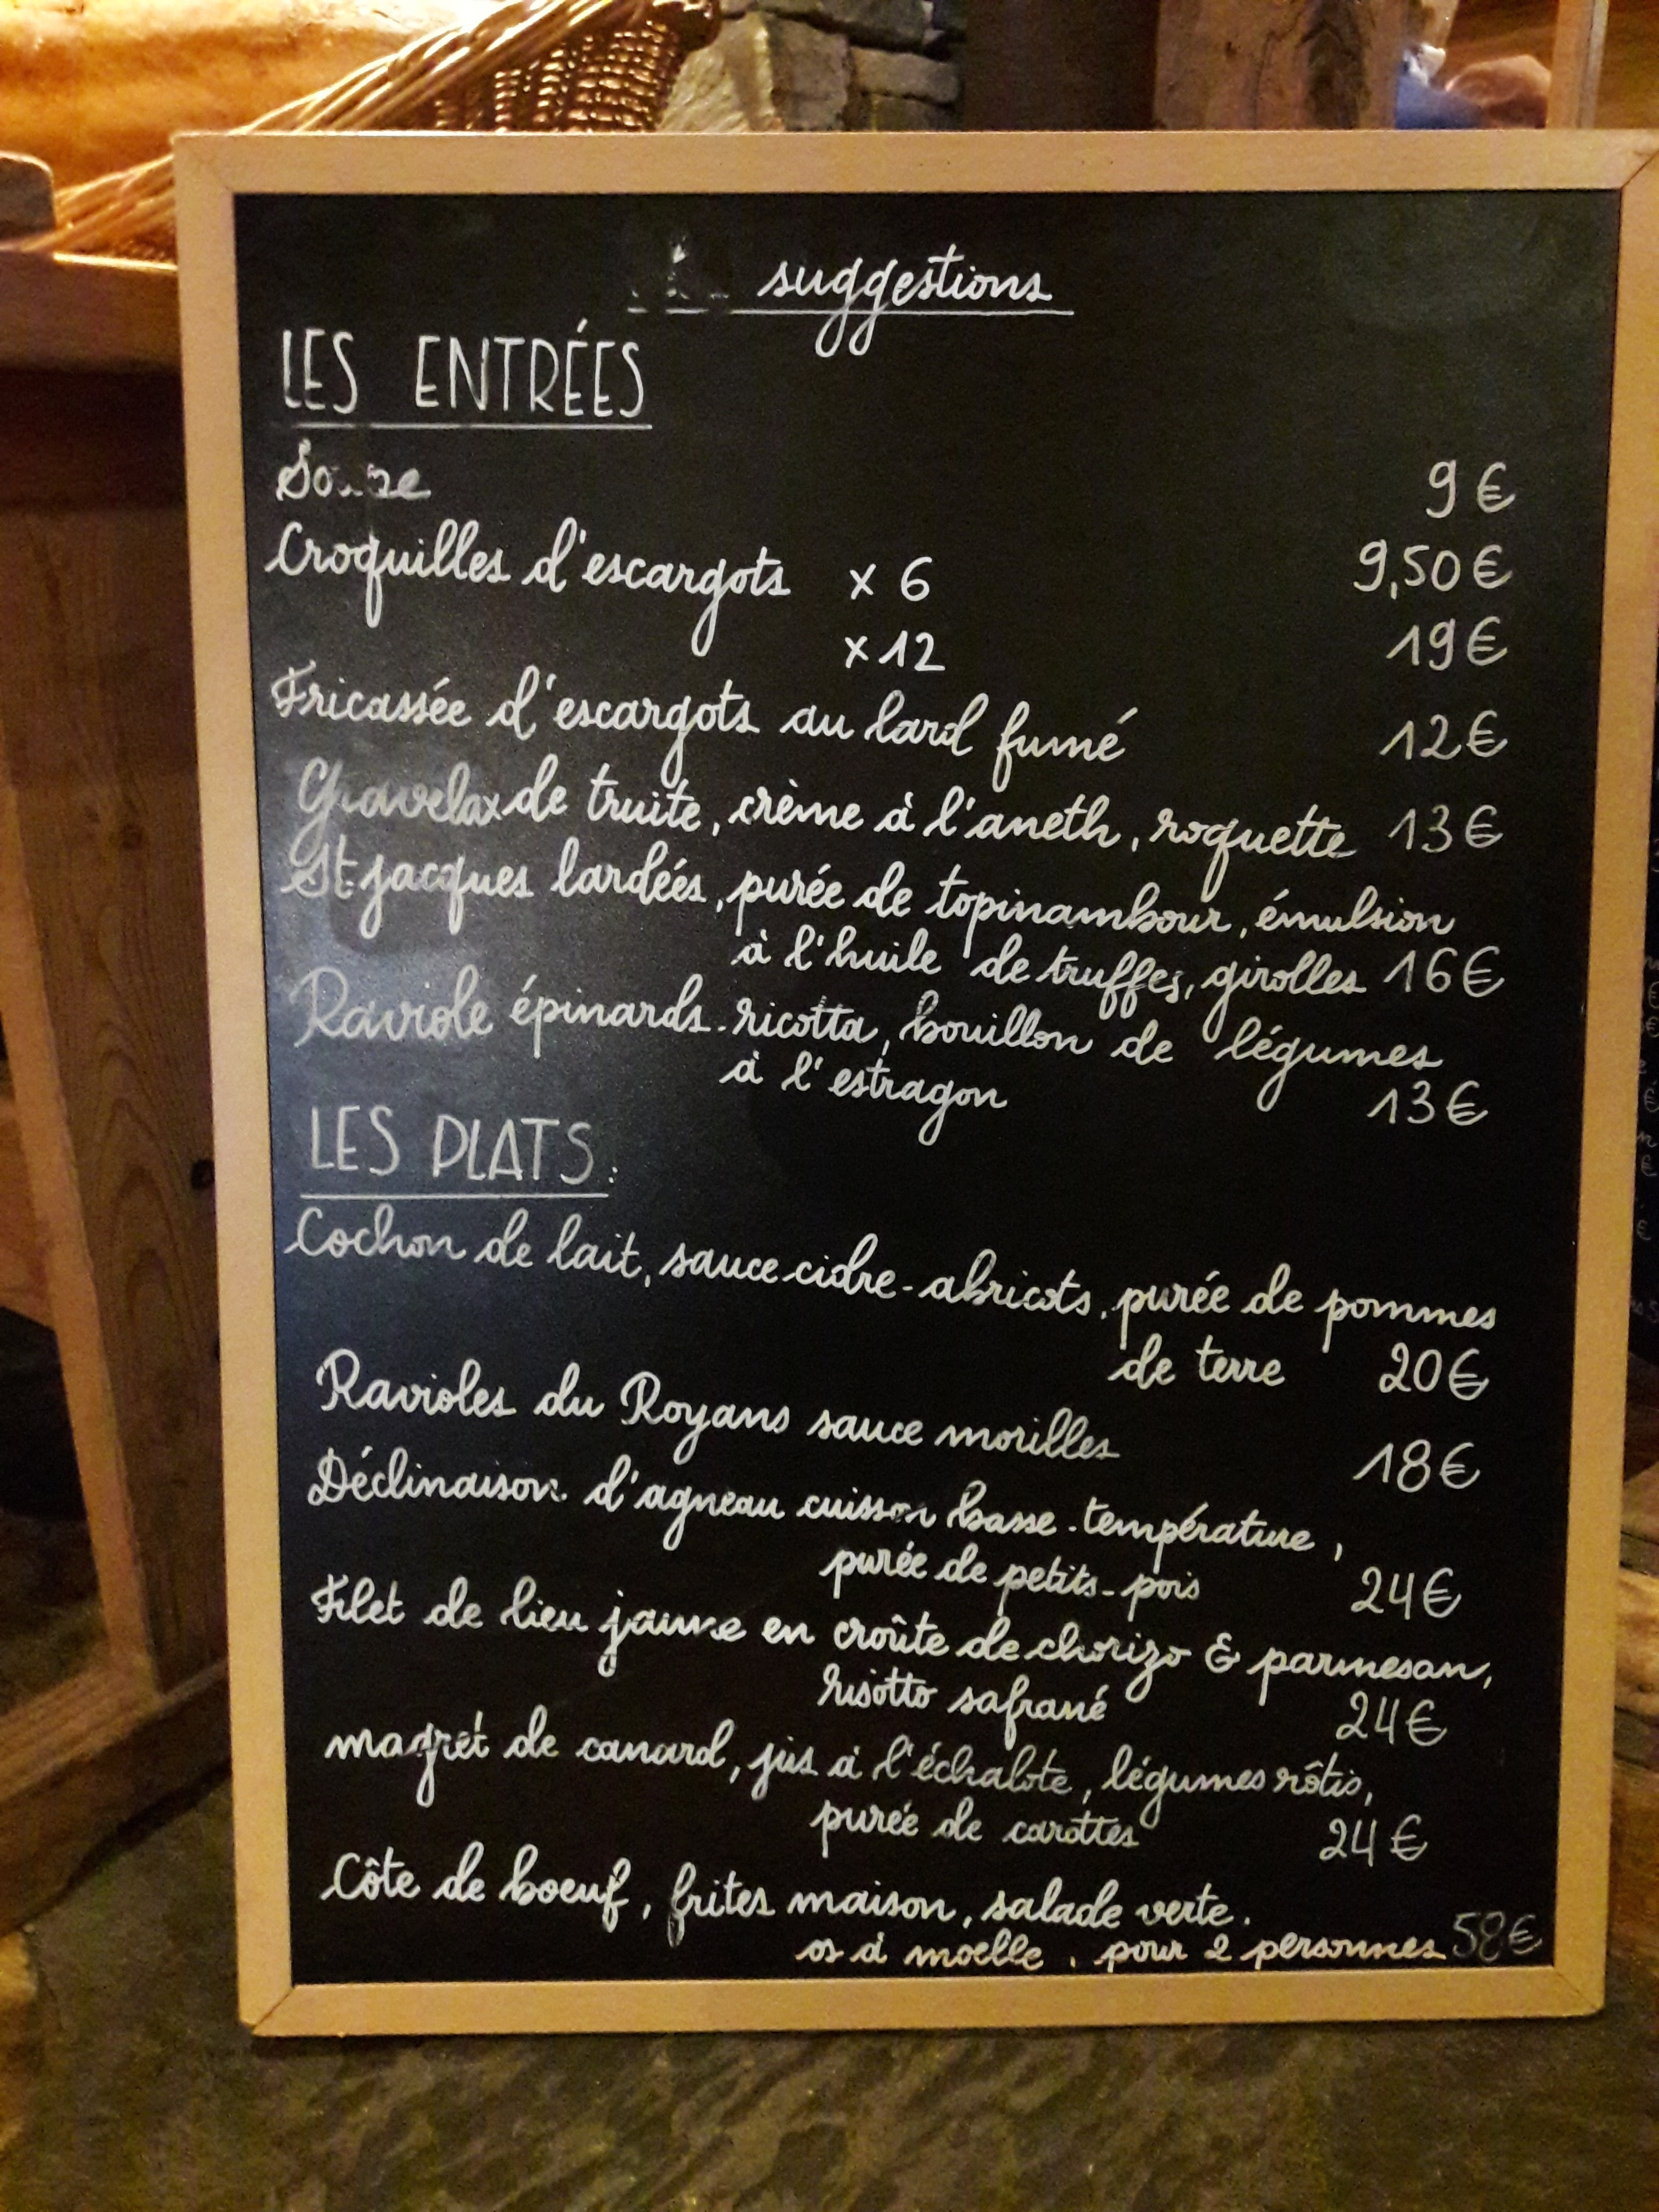 suggestions
LES ENTRÉES
9 €
Croquilles d'escargots x 6 9,50 €
x 12 19 €
Fricassée d'escargots au lard fumé 12 €
Gravelax de truite, crème à l'aneth, roquette 13 €
St jacques lardées, purée de topinambour, émulsion
à l'huile de truffes, girolles 16 €
Raviole épinards-ricotta, bouillon de légumes
à l'estragon 13 €
LES PLATS:
Cochon de lait, sauce cidre-abricots, purée de pommes
de terre 20 €
Ravioles du Royans sauce morilles 18 €
Déclinaison d'agneau cuisson basse-température,
purée de petits-pois 24 €
Filet de lieu jaune en croûte de chorizo & parmesan,
risotto safrané 24 €
magret de canard, jus à l'échalote, légumes rôtis,
purée de carottes 24 €
Côte de boeuf, frites maison, salade verte.
os à moelle, pour 2 personnes 58 €